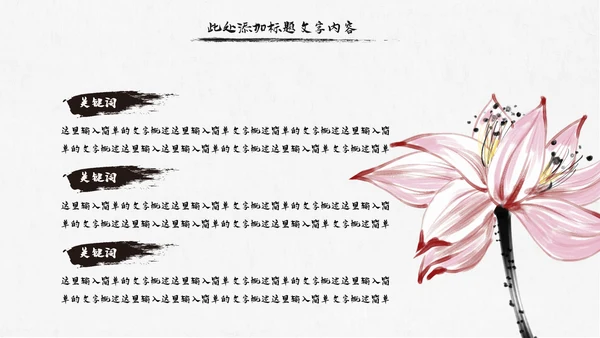 此处添加标题文字内容
关键词
这里输入简单的文字概述这里输入简单文字概述简单的文字概述这里输入简
单的文字概述这里输入这里输入简单的文字概述这里输入简单文字概述简单
关键词
这里输入简单的文字概述这里输入简单文字概述简单的文字概述这里输入简
单的文字概述这里输入这里输入简单的文字概述这里输入简单文字概述简单
关键词
这里输入简单的文字概述这里输入简单文字概述简单的文字概述这里输入简
单的文字概述这里输入这里输入简单的文字概述这里输入简单文字概述简单